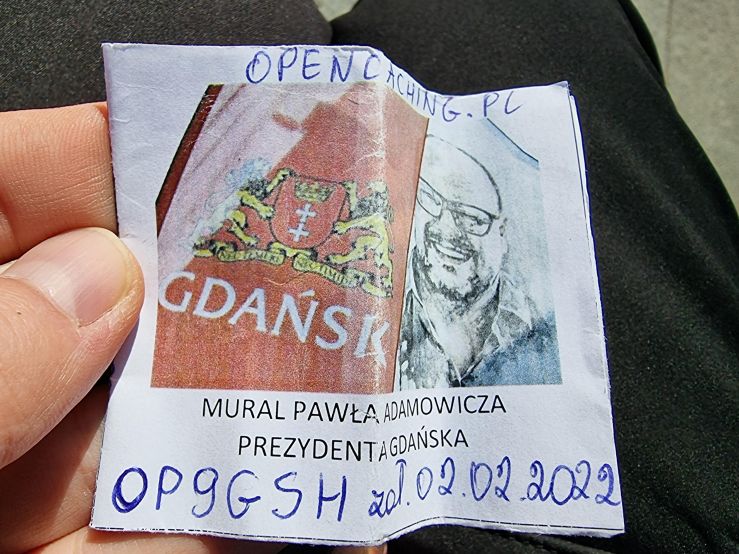 OPENCACHING.PL
GDAŃSK
MURAL PAWŁA ADAMOWICZA
PREZYDENTA GDAŃSKA
OP9GSH zał. 02.02.2022